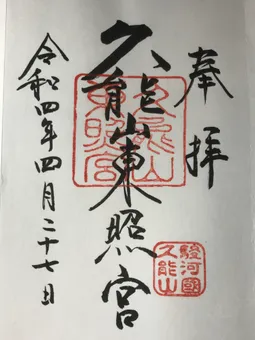 奉拝
久能山東照宮
令和四年四月二十七日
久能山
東照宮
駿河國
久能山